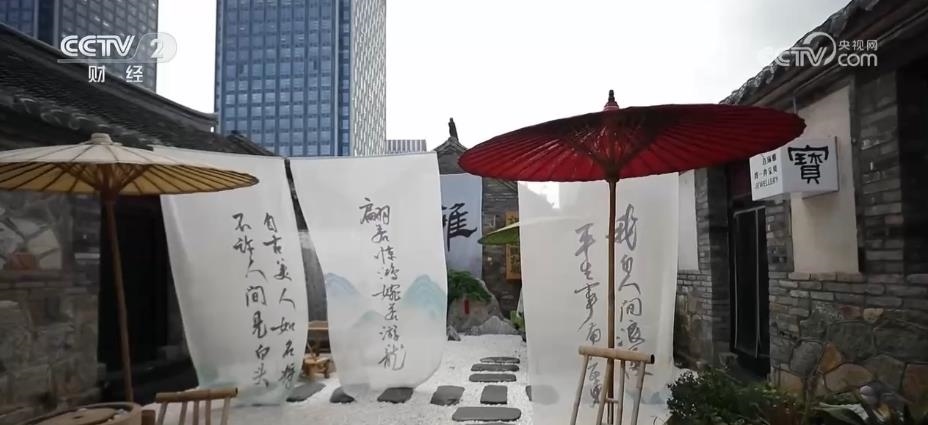 CCTV 2
财经
CCTV.com
央视网
自古美人如名将
不许人间见白头
翩若惊鸿婉若游龙
雅
我自人间漫
平生事南
寶
JEWELLERY